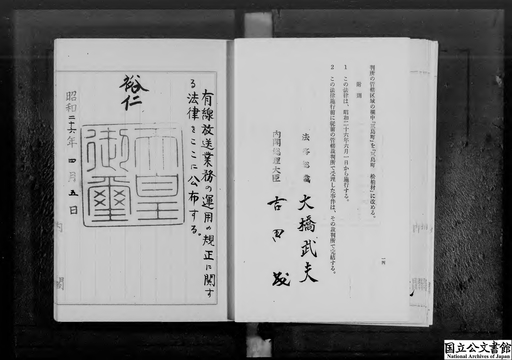 判所の管轄区域の欄中「三島町」を「三島町 鵜船村」に改める。
附則
1 この法律は、昭和二十六年六月一日から施行する。
2 この法律施行前に従前の管轄裁判所で受理した事件は、その裁判所で完結する。
法務総裁 大橋武夫
内閣総理大臣 吉田茂
一四
有線放送業務の運用の規正に関す
る法律をここに公布する。
裕仁
天皇
御璽
昭和二十六年四月五日
国立公文書館
National Archives of Japan